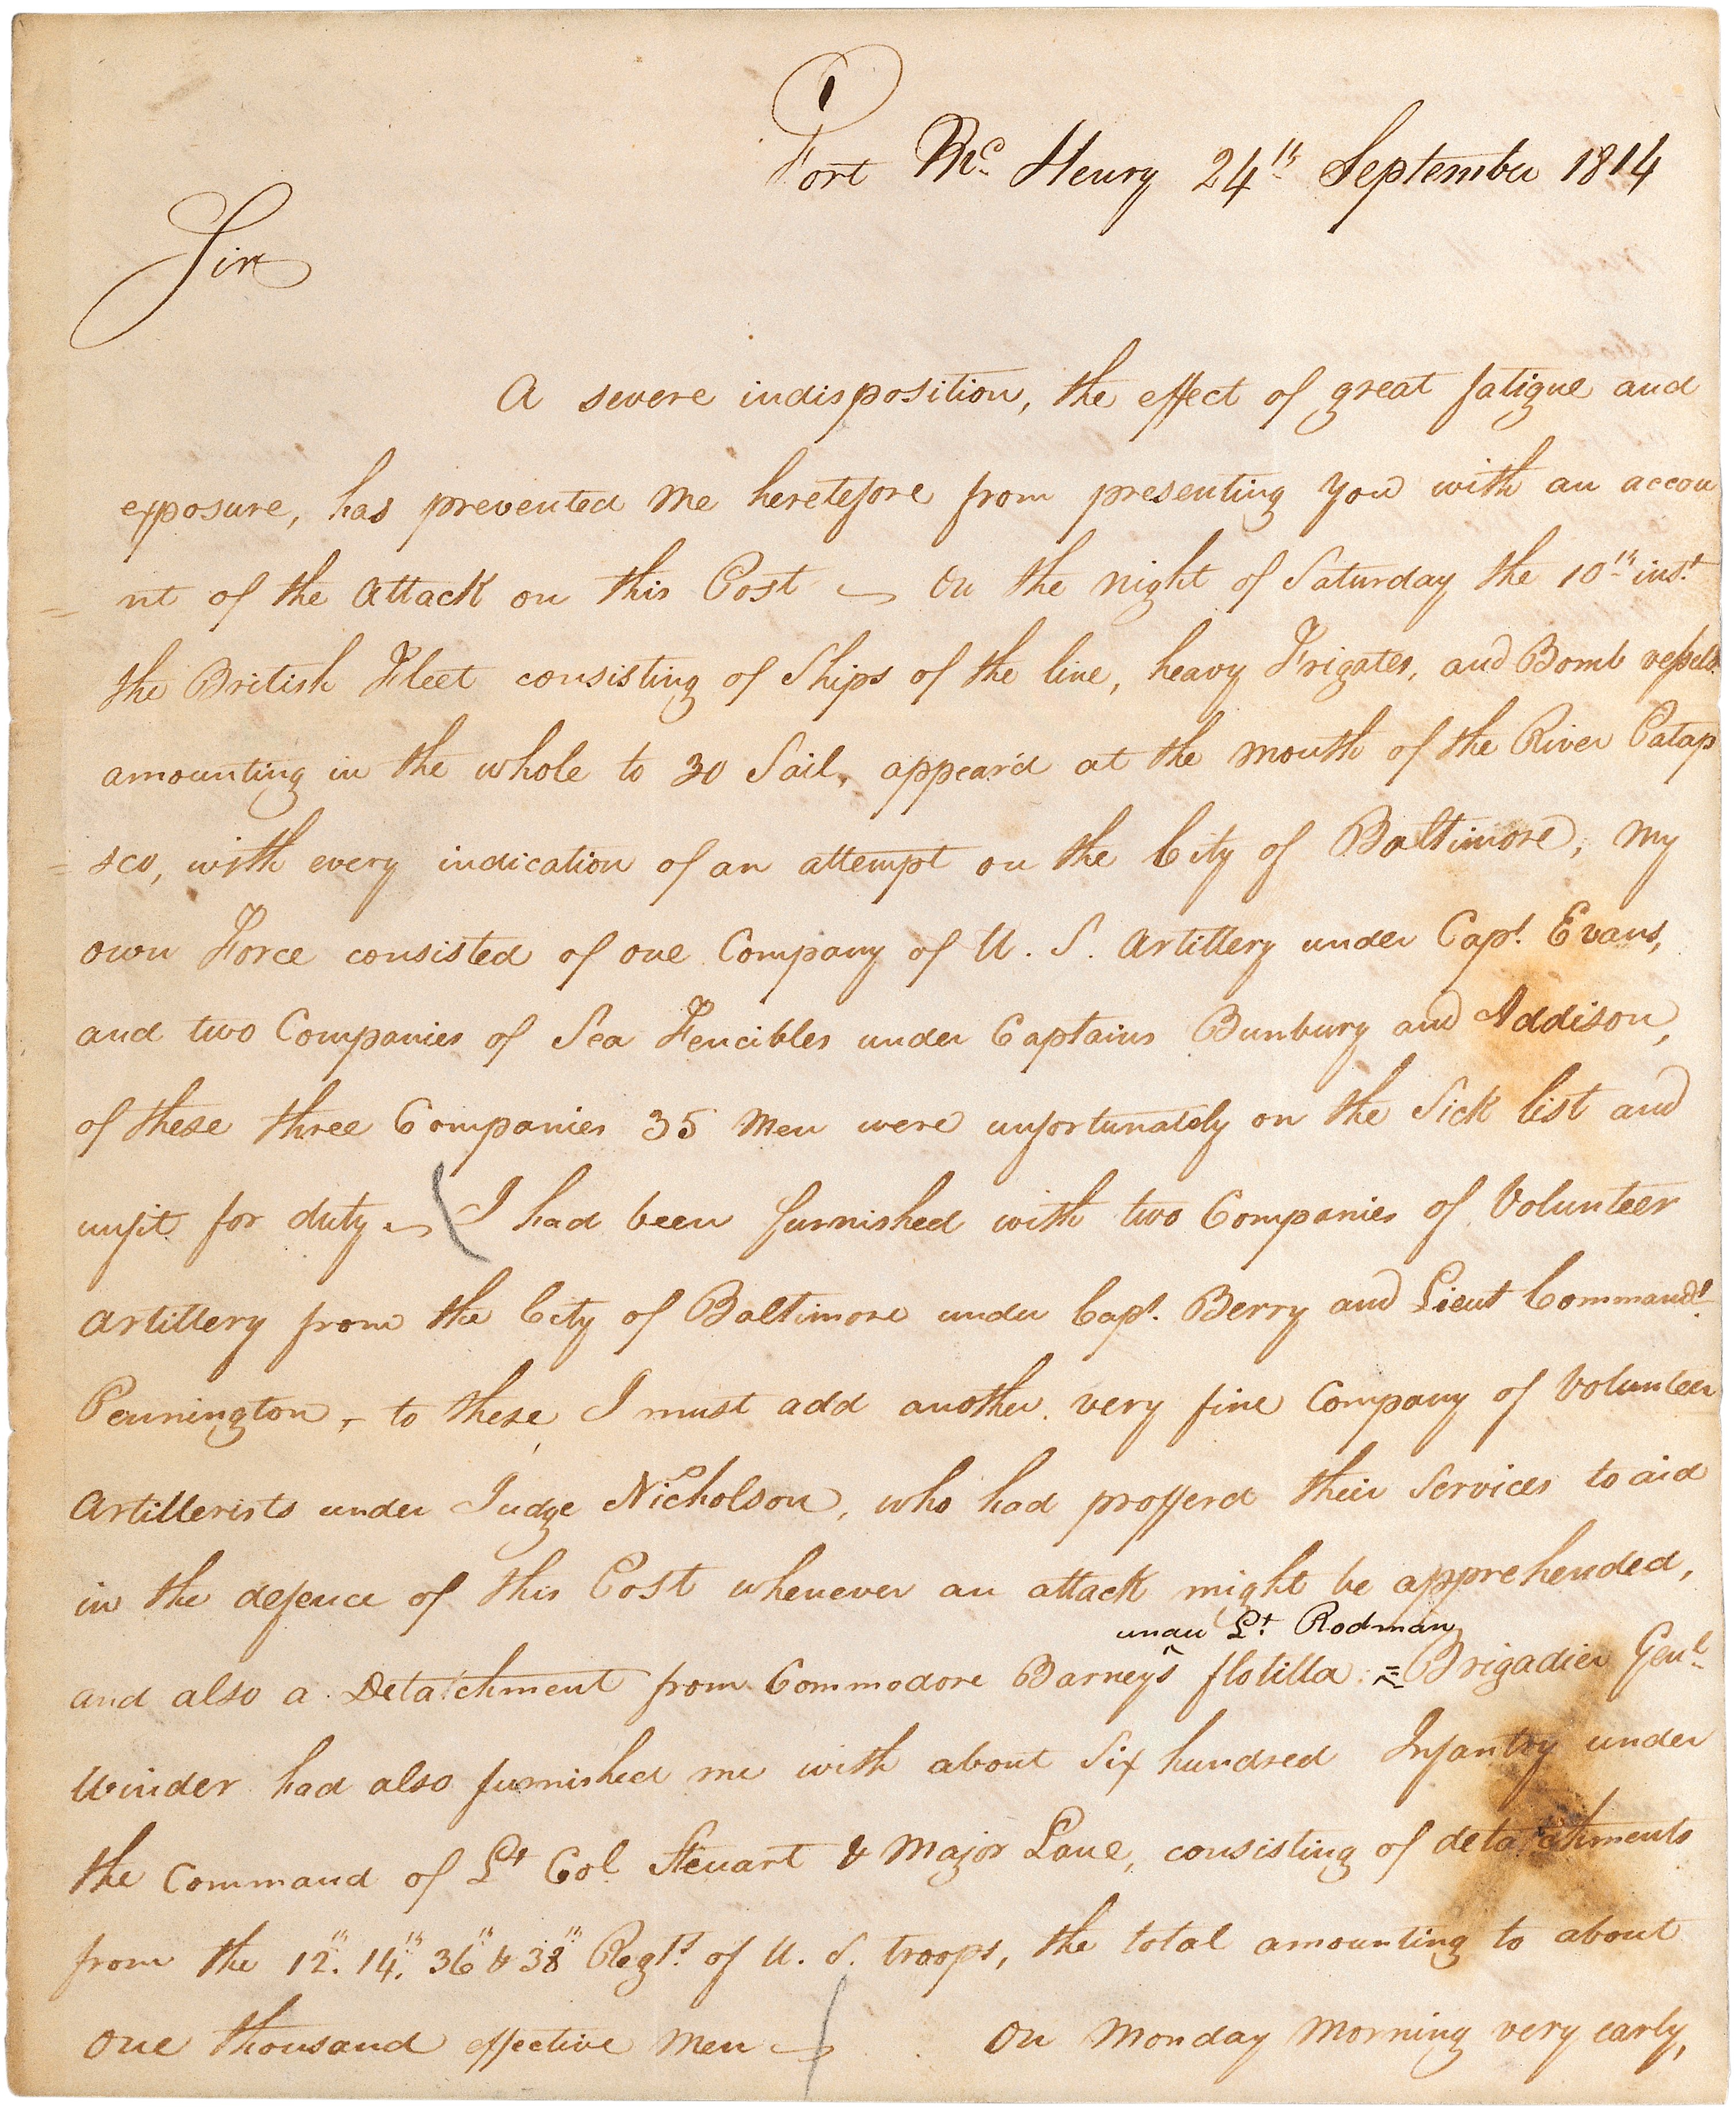 Fort McHenry 24th September 1814
Sir
A severe indisposition, the effect of great fatigue and
exposure, has prevented me heretofore from presenting you with an accou
= nt of the Attack on this Post — On the night of Saturday the 10th inst.
the British Fleet consisting of Ships of the line, heavy Frigates, and Bomb vessels
amounting in the whole to 30 Sail, appeard at the mouth of the River Patap
= sco, with every indication of an attempt on the City of Baltimore; My
own Force consisted of one Company of U. S. Artillery under Capt. Evans,
and two Companies of Sea Fencibles under Captains Bunbury and Addison,
of these three Companies 35 Men were unfortunately on the Sick list and
unfit for duty — ( I had been furnished with two Companies of Volunteer
Artillery from the City of Baltimore under Capt. Berry and Lieut Commandt.
Pennington, - to these I must add another very fine Company of Volunteer
Artillerists under Judge Nicholson, who had profferd their Services to aid
in the defence of this Post whenever an attack might be apprehended,
under Lt. Rodman
and also a Detatchment from Commodore Barney's ^ flotilla = Brigadier Genl.
Winder had also furnished me with about Six hundred Infantry under
the Command of Lt Col. Steuart & Major Lane, consisting of detatchments
from the 12th. 14th. 36th & 38th Regts. of U. S. troops, the total amounting to about
one thousand effective Men — ) On Monday Morning very early,